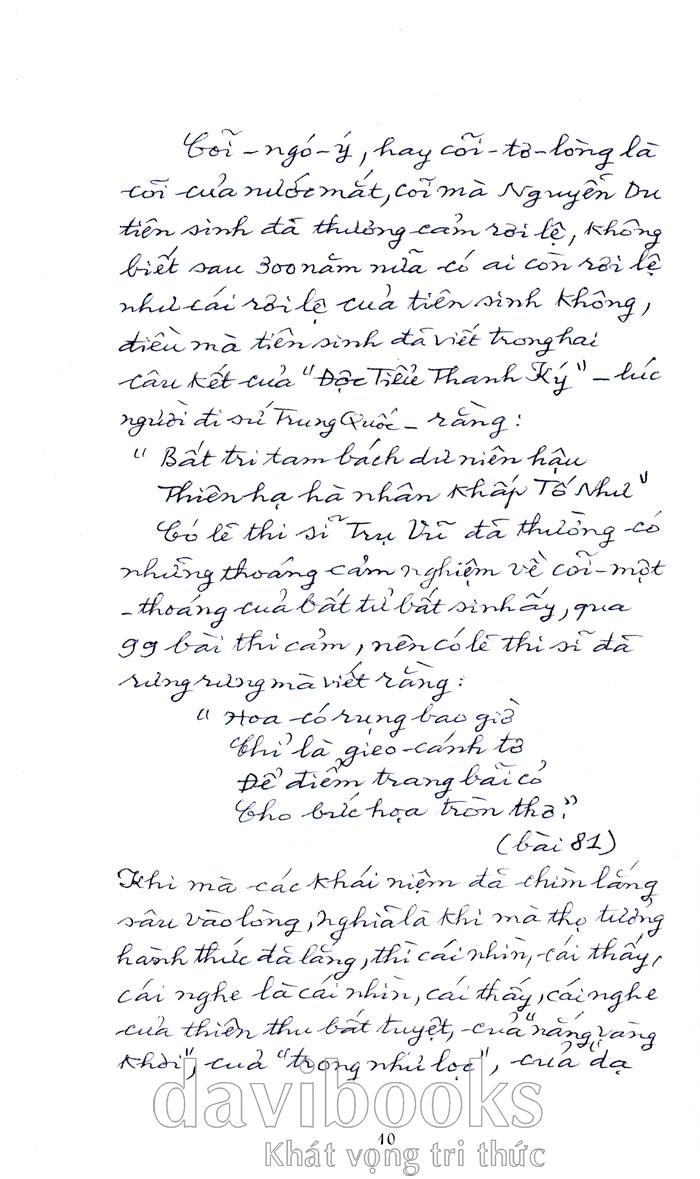 Cõi-ngó-ý, hay cõi-tơ-lòng là
cõi của nước mắt, cõi mà Nguyễn Du
tiên sinh đã thương cảm rơi lệ, không
biết sau 300 năm nữa có ai còn rơi lệ
như cái rơi lệ của tiên sinh không,
điều mà tiên sinh đã viết trong hai
câu kết của "Độc Tiểu Thanh Ký" - lúc
người đi sứ Trung Quốc - rằng:
"Bất tri tam bách dư niên hậu
Thiên hạ hà nhân khấp Tố Như"
Có lẽ thi sĩ Trụ Vũ đã thường có
những thoáng cảm nghiệm về cõi-một
-thoáng của bất tử bất sinh ấy, qua
99 bài thi cảm, nên có lẽ thi sĩ đã
rưng rưng mà viết rằng:
"Hoa có rụng bao giờ
Chỉ là gieo cánh tơ
Để điểm trang bãi cỏ
Cho bức họa tròn thơ."
(bài 81)
Khi mà các khái niệm đã chìm lắng
sâu vào lòng, nghĩa là khi mà thọ tưởng
hành thức đã lắng, thì cái nhìn, cái thấy,
cái nghe là cái nhìn, cái thấy, cái nghe
của thiên thu bất tuyệt, của "nắng vàng
khơi", của "trong như lọc", của "dạ
davibooks
10
Khát vọng tri thức